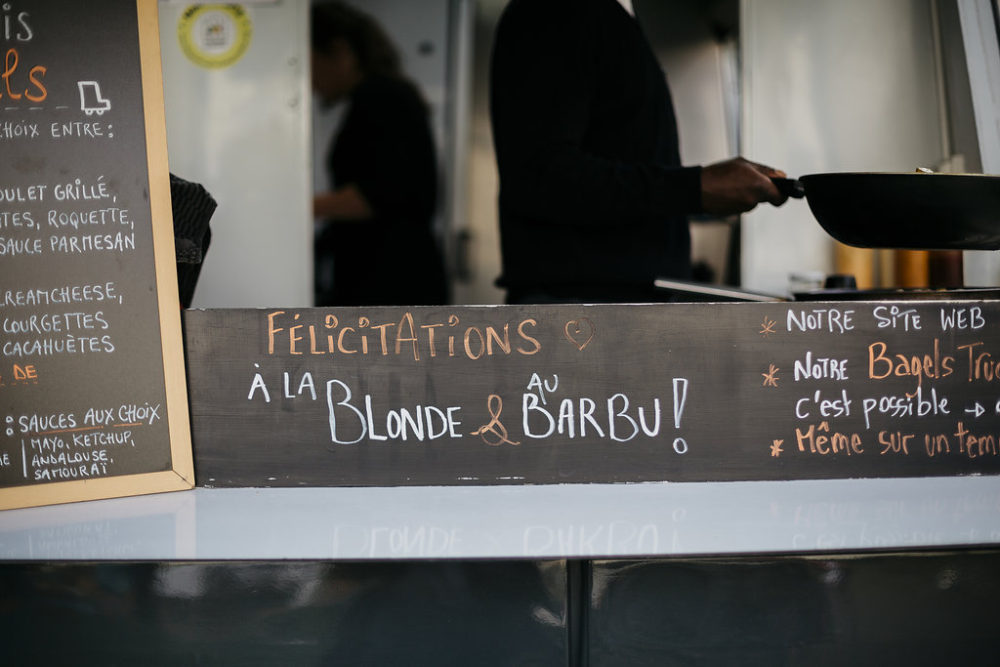 is
ls
CHOIX ENTRE :
OULET GRILLÉ,
TES, ROQUETTE,
SAUCE PARMESAN
CREAMCHEESE,
COURGETTES
CACAHUÈTES
DE
: SAUCES AUX CHOIX
MAYO, KETCHUP,
ANDALOUSE,
SAMOURAÏ
FÉLICITATIONS
À LA BLONDE & AU BARBU !
* NOTRE SITE WEB
* NOTRE Bagels Truc
c'est possible →
* Même sur un tem